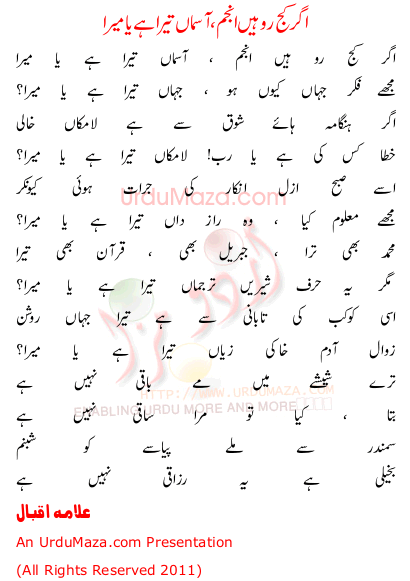 اگر کج رو ہیں انجم، آسماں تیرا ہے یا میرا
اگر کج رو ہیں انجم ، آسماں تیرا ہے یا میرا
مجھے فکر جہاں کیوں ہو ، جہاں تیرا ہے یا میرا؟
اگر ہنگامہ ہائے شوق سے ہے لامکاں خالی
خطا کس کی ہے یا رب! لامکاں تیرا ہے یا میرا؟
اسے صبح ازل انکار کی جرات ہوئی کیونکر
مجھے معلوم کیا ، وہ راز داں تیرا ہے یا میرا؟
محمد بھی ترا ، جبریل بھی ، قرآن بھی تیرا
مگر یہ حرف شیریں ترجماں تیرا ہے یا میرا؟
اسی کوکب کی تابانی سے ہے تیرا جہاں روشن
زوال آدم خاکی زیاں تیرا ہے یا میرا؟
ترے شیشے میں مے باقی نہیں ہے
بتا ، کیا تو مرا ساقی نہیں ہے
سمندر سے ملے پیاسے کو شبنم
بخیلی ہے یہ رزاقی نہیں ہے
علامہ اقبال
An UrduMaza.com Presentation
(All Rights Reserved 2011)
UrduMaza.com
اردو مزا
HTTP://WWW.URDUMAZA.COM
ENABLING URDU MORE AND MORE